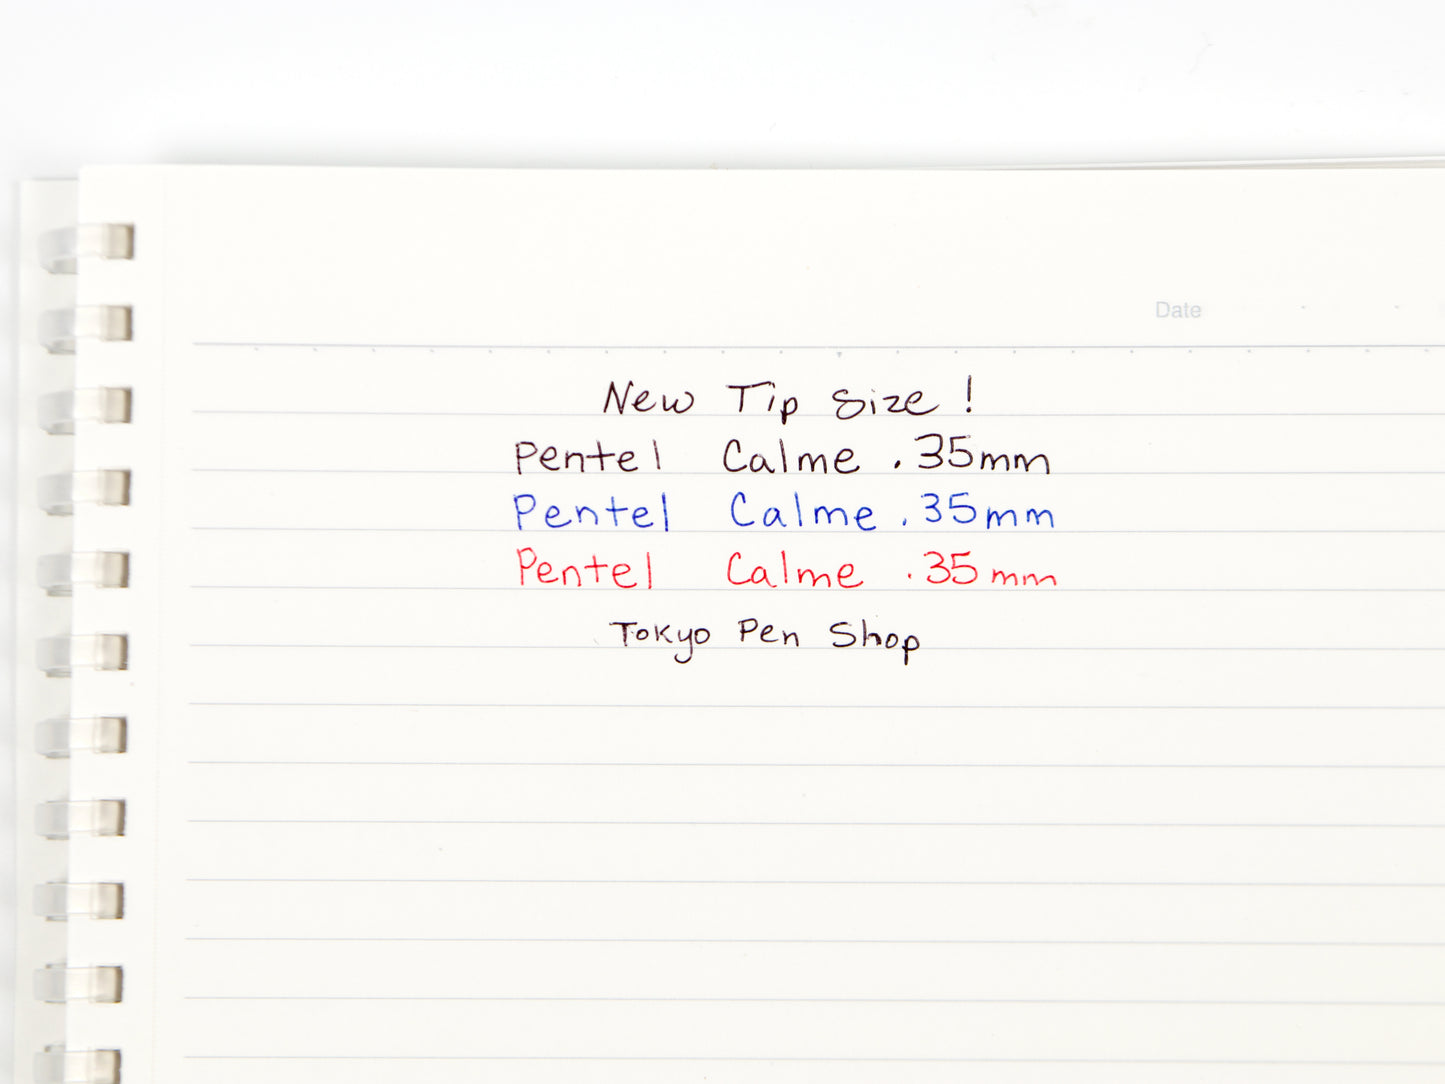 Date
New Tip Size !
Pentel Calme .35mm
Pentel Calme .35mm
Pentel Calme .35mm
Tokyo Pen Shop